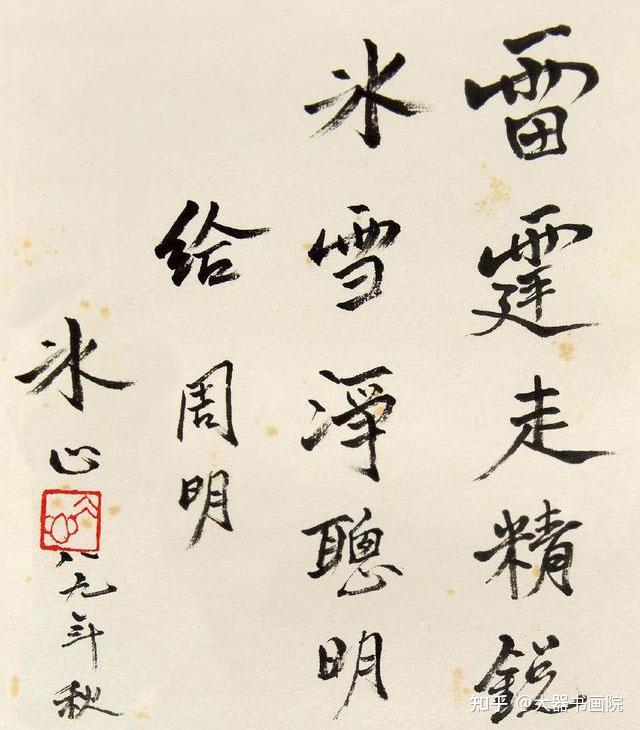 雷霆走精鋭
冰雪淨聰明
给周明
冰心
八九年秋
知乎 @大器书画院